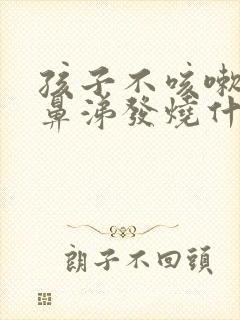 孩子不咳嗽
鼻涕發燒什
朗子不回頭